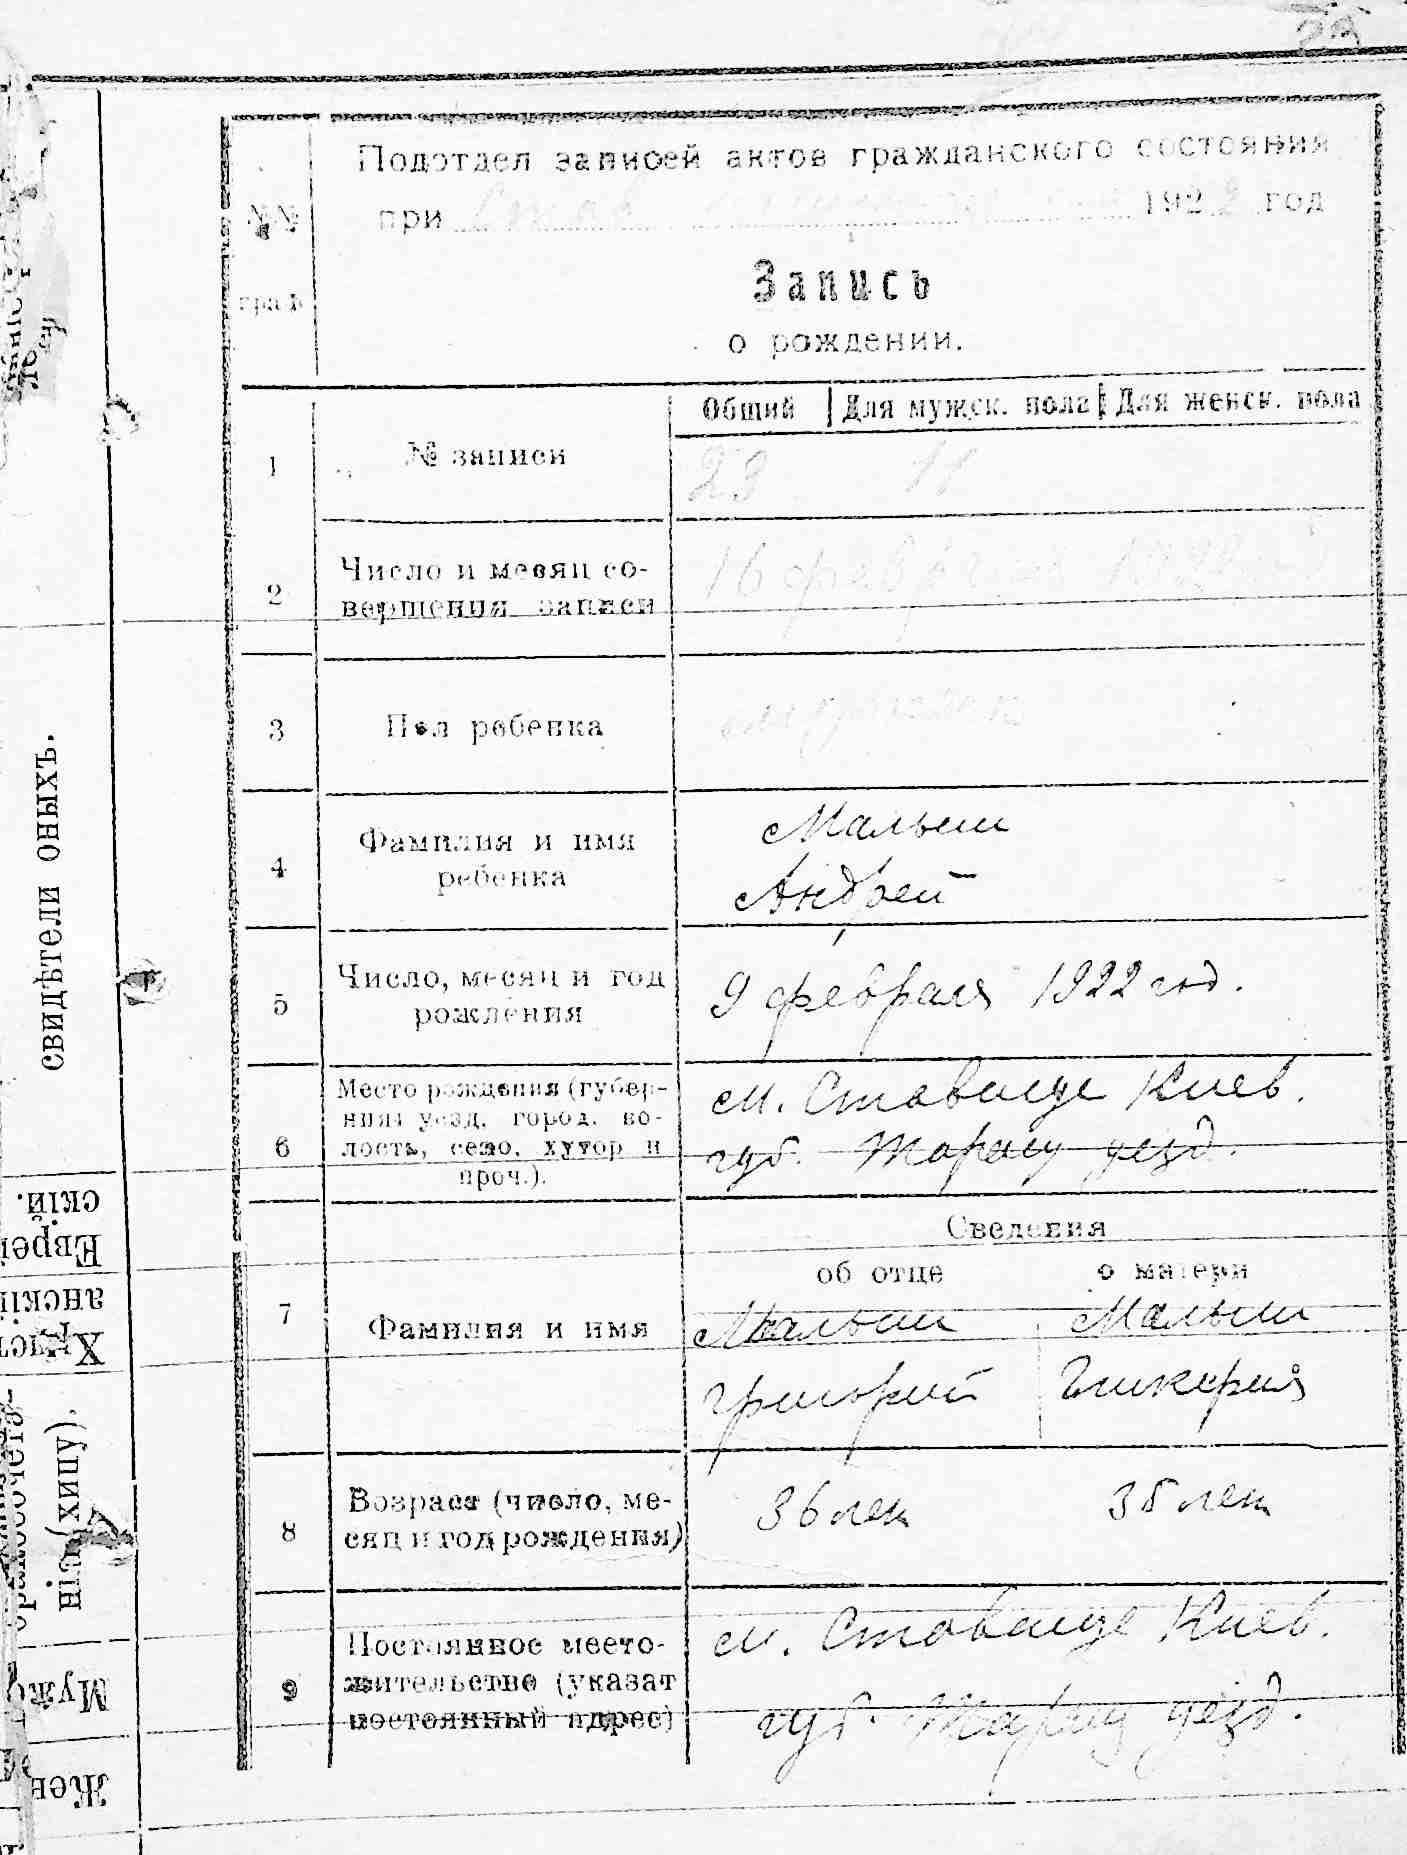 Подотдел записей актов гражданского состояния
№№ при 1922 год
граф
Запись
о рождении.
Общий Для мужск. пола Для женск. пола
1 № записи 23 11
2 Число и месяц со-
вершения записи 16 февраля 1922
3 Пол ребенка
4 Фамилия и имя
ребенка
Малыш
Андрей
5 Число, месяц и год
рождения
9 февраля 1922 год.
6 Место рождения (губер-
ния, уезд, город, во-
лость, село, хутор и
проч.).
м. Ставище Киев.
губ. Таращ уезд.
Сведения
об отце о матери
7 Фамилия и имя
Малыш Малыш
Григорий Гликерия
8 Возраст (число, ме-
сяц и год рождения)
36 лет 35 лет
9 Постоянное место-
жительство (указат
постоянный адрес)
м. Ставище Киев.
губ. Таращ уезд.
свидѣтели оныхъ.
скій.
Еврей
анскій
Христ
ніэ (хипу).
Муж
Жен